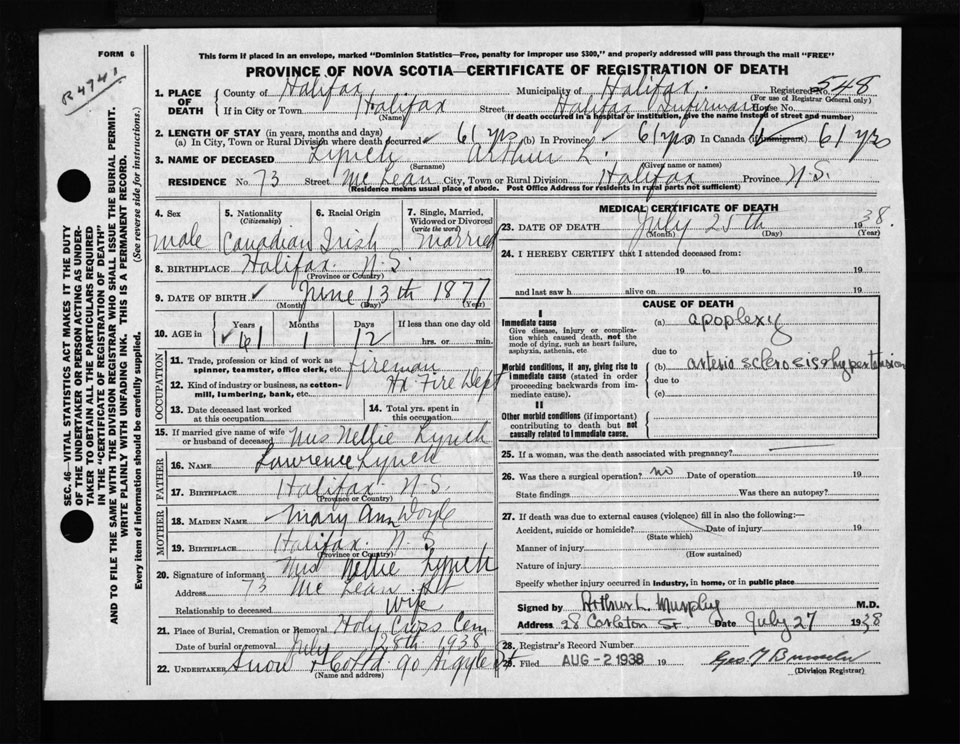 FORM 6
R 4741
This form if placed in an envelope, marked "Dominion Statistics—Free, penalty for improper use $300," and properly addressed will pass through the mail "FREE"
PROVINCE OF NOVA SCOTIA—CERTIFICATE OF REGISTRATION OF DEATH
1. PLACE OF DEATH
County of Halifax Municipality of Halifax. Registered No. 548
(For use of Registrar General only)
If in City or Town Halifax Street Halifax Infirmary House No.
(Name) (If death occurred in a hospital or institution, give the name instead of street and number)
2. LENGTH OF STAY (in years, months and days)
(a) In City, Town or Rural Division where death occurred 61 yrs (b) In Province 61 yrs In Canada (if immigrant) 61 yrs
3. NAME OF DECEASED Lynch Arthur L.
(Surname) (Given name or names)
RESIDENCE No. 73 Street McLean City, Town or Rural Division Halifax Province N.S.
(Residence means usual place of abode. Post Office Address for residents in rural parts not sufficient)
4. Sex
male
5. Nationality (Citizenship)
Canadian
6. Racial Origin
Irish
7. Single, Married, Widowed or Divorced (write the word)
married
8. BIRTHPLACE Halifax N.S.
(Province or Country)
9. DATE OF BIRTH June 13th 1877
(Month) (Day) (Year)
10. AGE in
Years Months Days If less than one day old
61 1 12 hrs. or min.
OCCUPATION
11. Trade, profession or kind of work as spinner, teamster, office clerk, etc. Fireman
12. Kind of industry or business, as cotton-mill, lumbering, bank, etc. Hx Fire Dept
13. Date deceased last worked at this occupation
14. Total yrs. spent in this occupation
15. If married give name of wife or husband of deceased Mrs Nellie Lynch
FATHER
16. NAME Lawrence Lynch
17. BIRTHPLACE Halifax N.S.
(Province or Country)
MOTHER
18. MAIDEN NAME Mary Ann Doyle
19. BIRTHPLACE Halifax. N.S
(Province or Country)
20. Signature of informant Mrs Nellie Lynch
Address 73 McLean St
Relationship to deceased Wife
21. Place of Burial, Cremation or Removal Holy Cross Cem
Date of burial or removal July 28th 1938
22. UNDERTAKER Snow & Co Ltd 90 Argyle St
(Name and address)
MEDICAL CERTIFICATE OF DEATH
23. DATE OF DEATH July 25th 1938.
(Month) (Day) (Year)
24. I HEREBY CERTIFY that I attended deceased from:
19 to 19
and last saw h alive on 19
CAUSE OF DEATH
I
Immediate cause
Give disease, injury or complication which caused death, not the mode of dying, such as heart failure, asphyxia, asthenia, etc
(a) apoplexy
due to
Morbid conditions, if any, giving rise to immediate cause (stated in order proceeding backwards from immediate cause).
(b) arterio sclerosis & hypertension
due to
(c)
II
Other morbid conditions (if important) contributing to death but not causally related to immediate cause.
25. If a woman, was the death associated with pregnancy?
26. Was there a surgical operation? no Date of operation 19
State findings Was there an autopsy?
27. If death was due to external causes (violence) fill in also the following:—
Accident, suicide or homicide? Date of injury 19
(State which)
Manner of injury
(How sustained)
Nature of injury
Specify whether injury occurred in industry, in home, or in public place
Signed by Arthur L. Murphy M.D.
Address 28 Carleton St Date July 27 1938
28. Registrar's Record Number
29. Filed AUG - 2 1938 19
(Division Registrar)
SEC. 46—VITAL STATISTICS ACT MAKES IT THE DUTY
OF THE UNDERTAKER OR PERSON ACTING AS UNDERTAKER
TO OBTAIN ALL THE PARTICULARS REQUIRED
IN THE "CERTIFICATE OF REGISTRATION OF DEATH"
AND TO FILE THE SAME WITH THE DIVISION REGISTRAR WHO SHALL ISSUE THE BURIAL PERMIT.
WRITE PLAINLY WITH UNFADING INK. THIS IS A PERMANENT RECORD.
Every item of information should be carefully supplied. (See reverse side for instructions.)